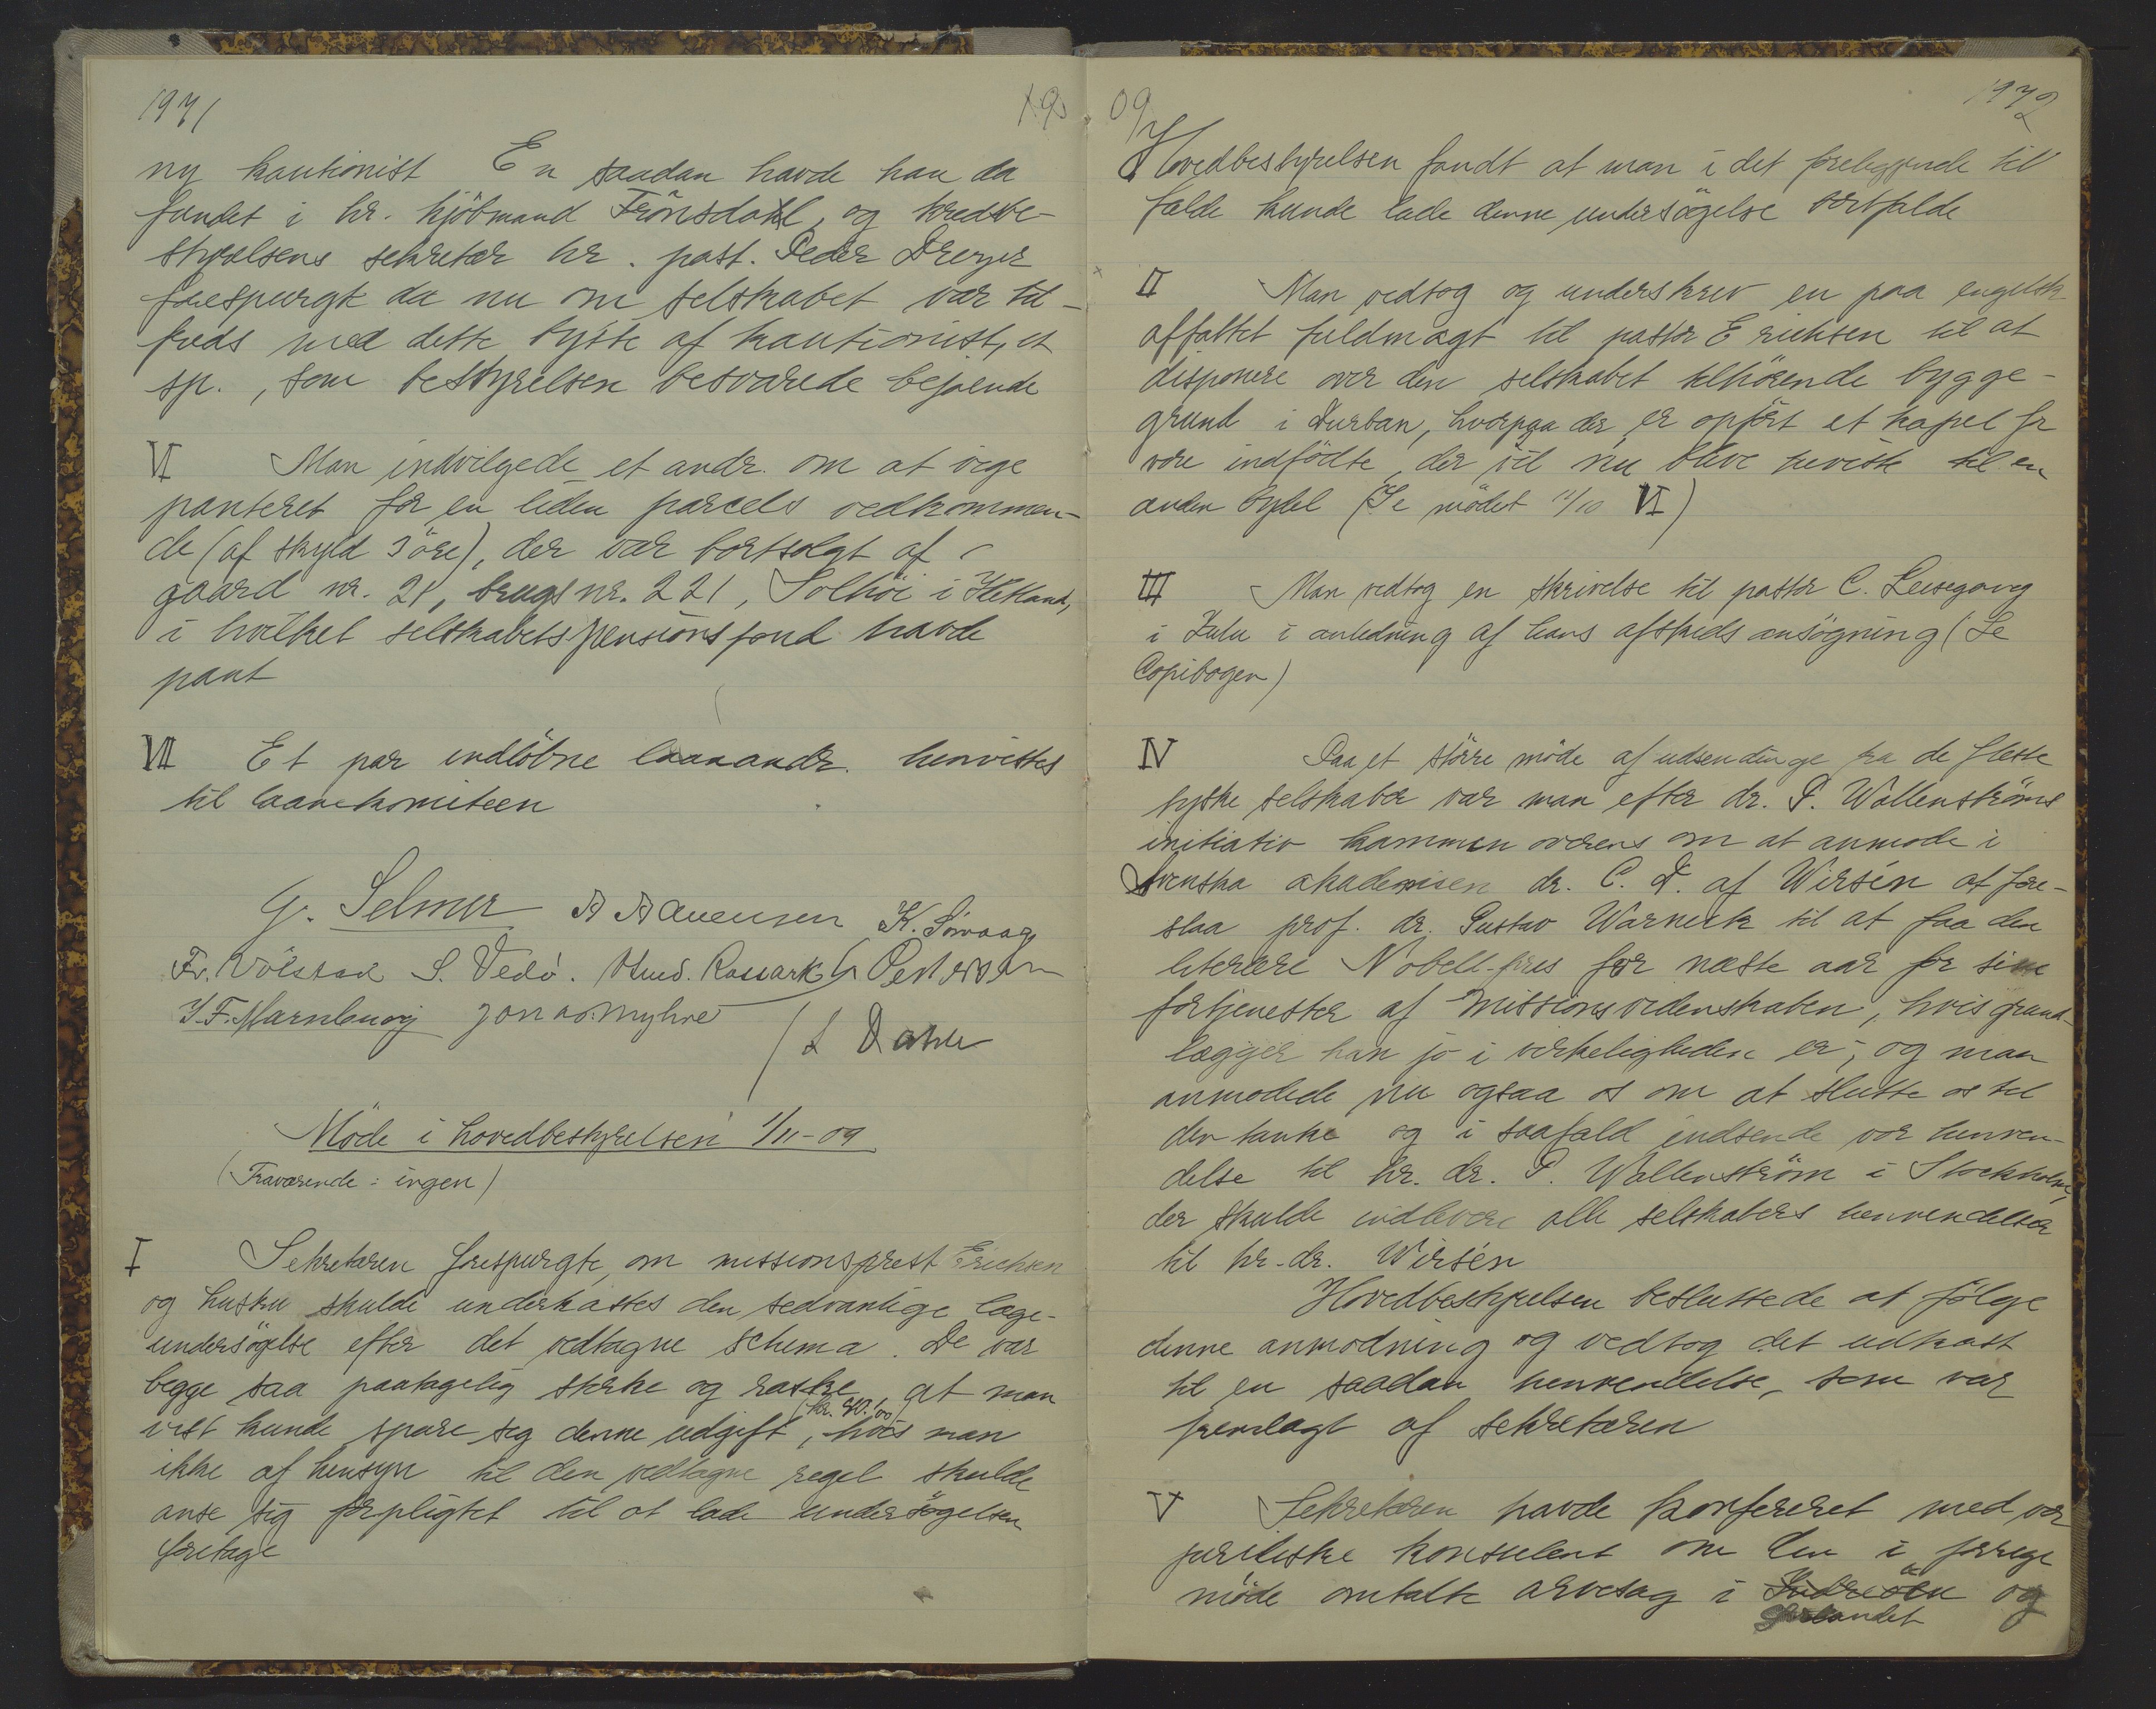 1971
19
ny kautionist En saadan havde han da
fundet i hr. kjöbmand Frönsdahl, og kredsbe-
styrelsens sekretær hr. past. Peder Dreyer
forespurgte da nu om selskabet var til-
freds med dette bytte af kautionist, et
sp., som bestyrelsen besvarede bejaende
VI Man indvilgede et andr. om at vige
panteret for en liden parcels vedkommen-
de (af skyld 3 öre), der var bortsolgt af
gaard nr. 21, brugs nr. 221, Solhöi i Hetland,
i hvilket selskabets pensionsfond havde
pant
VII Et par indlöbne laaneandr. henvistes
til laanekomiteen
G. Selmer A Aavensen K. Sömaag
Fr. Völstad S. Vedö. Amd. Rossark G Pedersen
J.F. Marnburg Jonas Myhre
L Dahle
Möde i hovedbestyrelsen 1/11-09
(Fraværende: ingen)
I Sekretæren forespurgte, om missionsprest Erichsen
og hustru skulde underkastes den sedvanlige læge-
undersögelse efter det vedtagne schema. De var
begge saa paatagelig sterke og raske, at man
vist kunde spare sig denne udgift, hvis man
ikke af hensyn til den vedtagne regel skulde
anse sig forpligtet til at lade undersögelsen
foretage
09
1972
Hovedbestyrelsen fandt at man i det foreliggende til
fælde kunde lade denne undersögelse bortfalde
II Man vedtog og underskrev en paa engelsk
affattet fuldmagt til pastor Erichsen til at
disponere over den selskabet tilhörende bygge-
grund i Durban, hvorpaa der er opfört et kapel for
vore indfödte, der vil nu blive henvist til en
anden bydel (Se mödet 11/10 VI)
III Man vedtog en skrivelse til pastor C. Leisegang
i Zulu i anledning af hans afskeds ansögning (Se
Copibogen)
IV Paa et större möde af udsendinge fra de fleste
tyske selskaber var man efter dr. P. Wallenströms
initiativ kommen overens om at anmode i
Svenska akademien dr. C. D. af Wirsén at fore-
slaa prof. dr. Gustav Warneck til at faa den
literære Nobell-pris for næste aar for sine
fortjenester af missionsvidenskaben, hvis grund-
lægger han jo i virkeligheden er, og man
anmodede nu ogsaa os om at slutte os til
den tanke og i saafald indsende vor henven-
delse til hr. dr. P. Wallenström i Stockholm,
der skulde indlevere alle selskabers henvendelser
til hr. dr. Wirsén
Hovedbestyrelsen besluttede at fölge
denne anmodning og vedtog det udkast
til en saadan henvendelse, som var
fremlagt af sekretæren
V Sekretæren havde konfereret med vor
juridiske konsulent om den i forrige
möde omtalte arvesag i Indreöen og